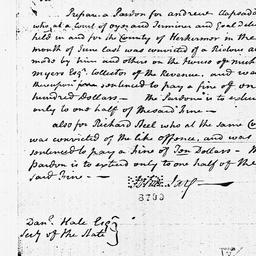 Prepare a Pardon for andrew
who at a Court of oyer and Terminer and Goal
held in and for the County of Herkermer in the
month of June last was convicted of a Riotous
made by him and others on the House of
myers Esqr. Collector of the Revenue, and was
thereupon sentenced to pay a fine of one
hundred Dollars — The Pardon is to extend
only to one half of the said Fine —
also for Richard Steel who at the same
was convicted of the like offence, and was
sentenced to pay a Fine of Ten Dollars —
pardon is to extend only to one half of the
said Fine —
John Jay
Danl. Hale Esqr
Secy of the State